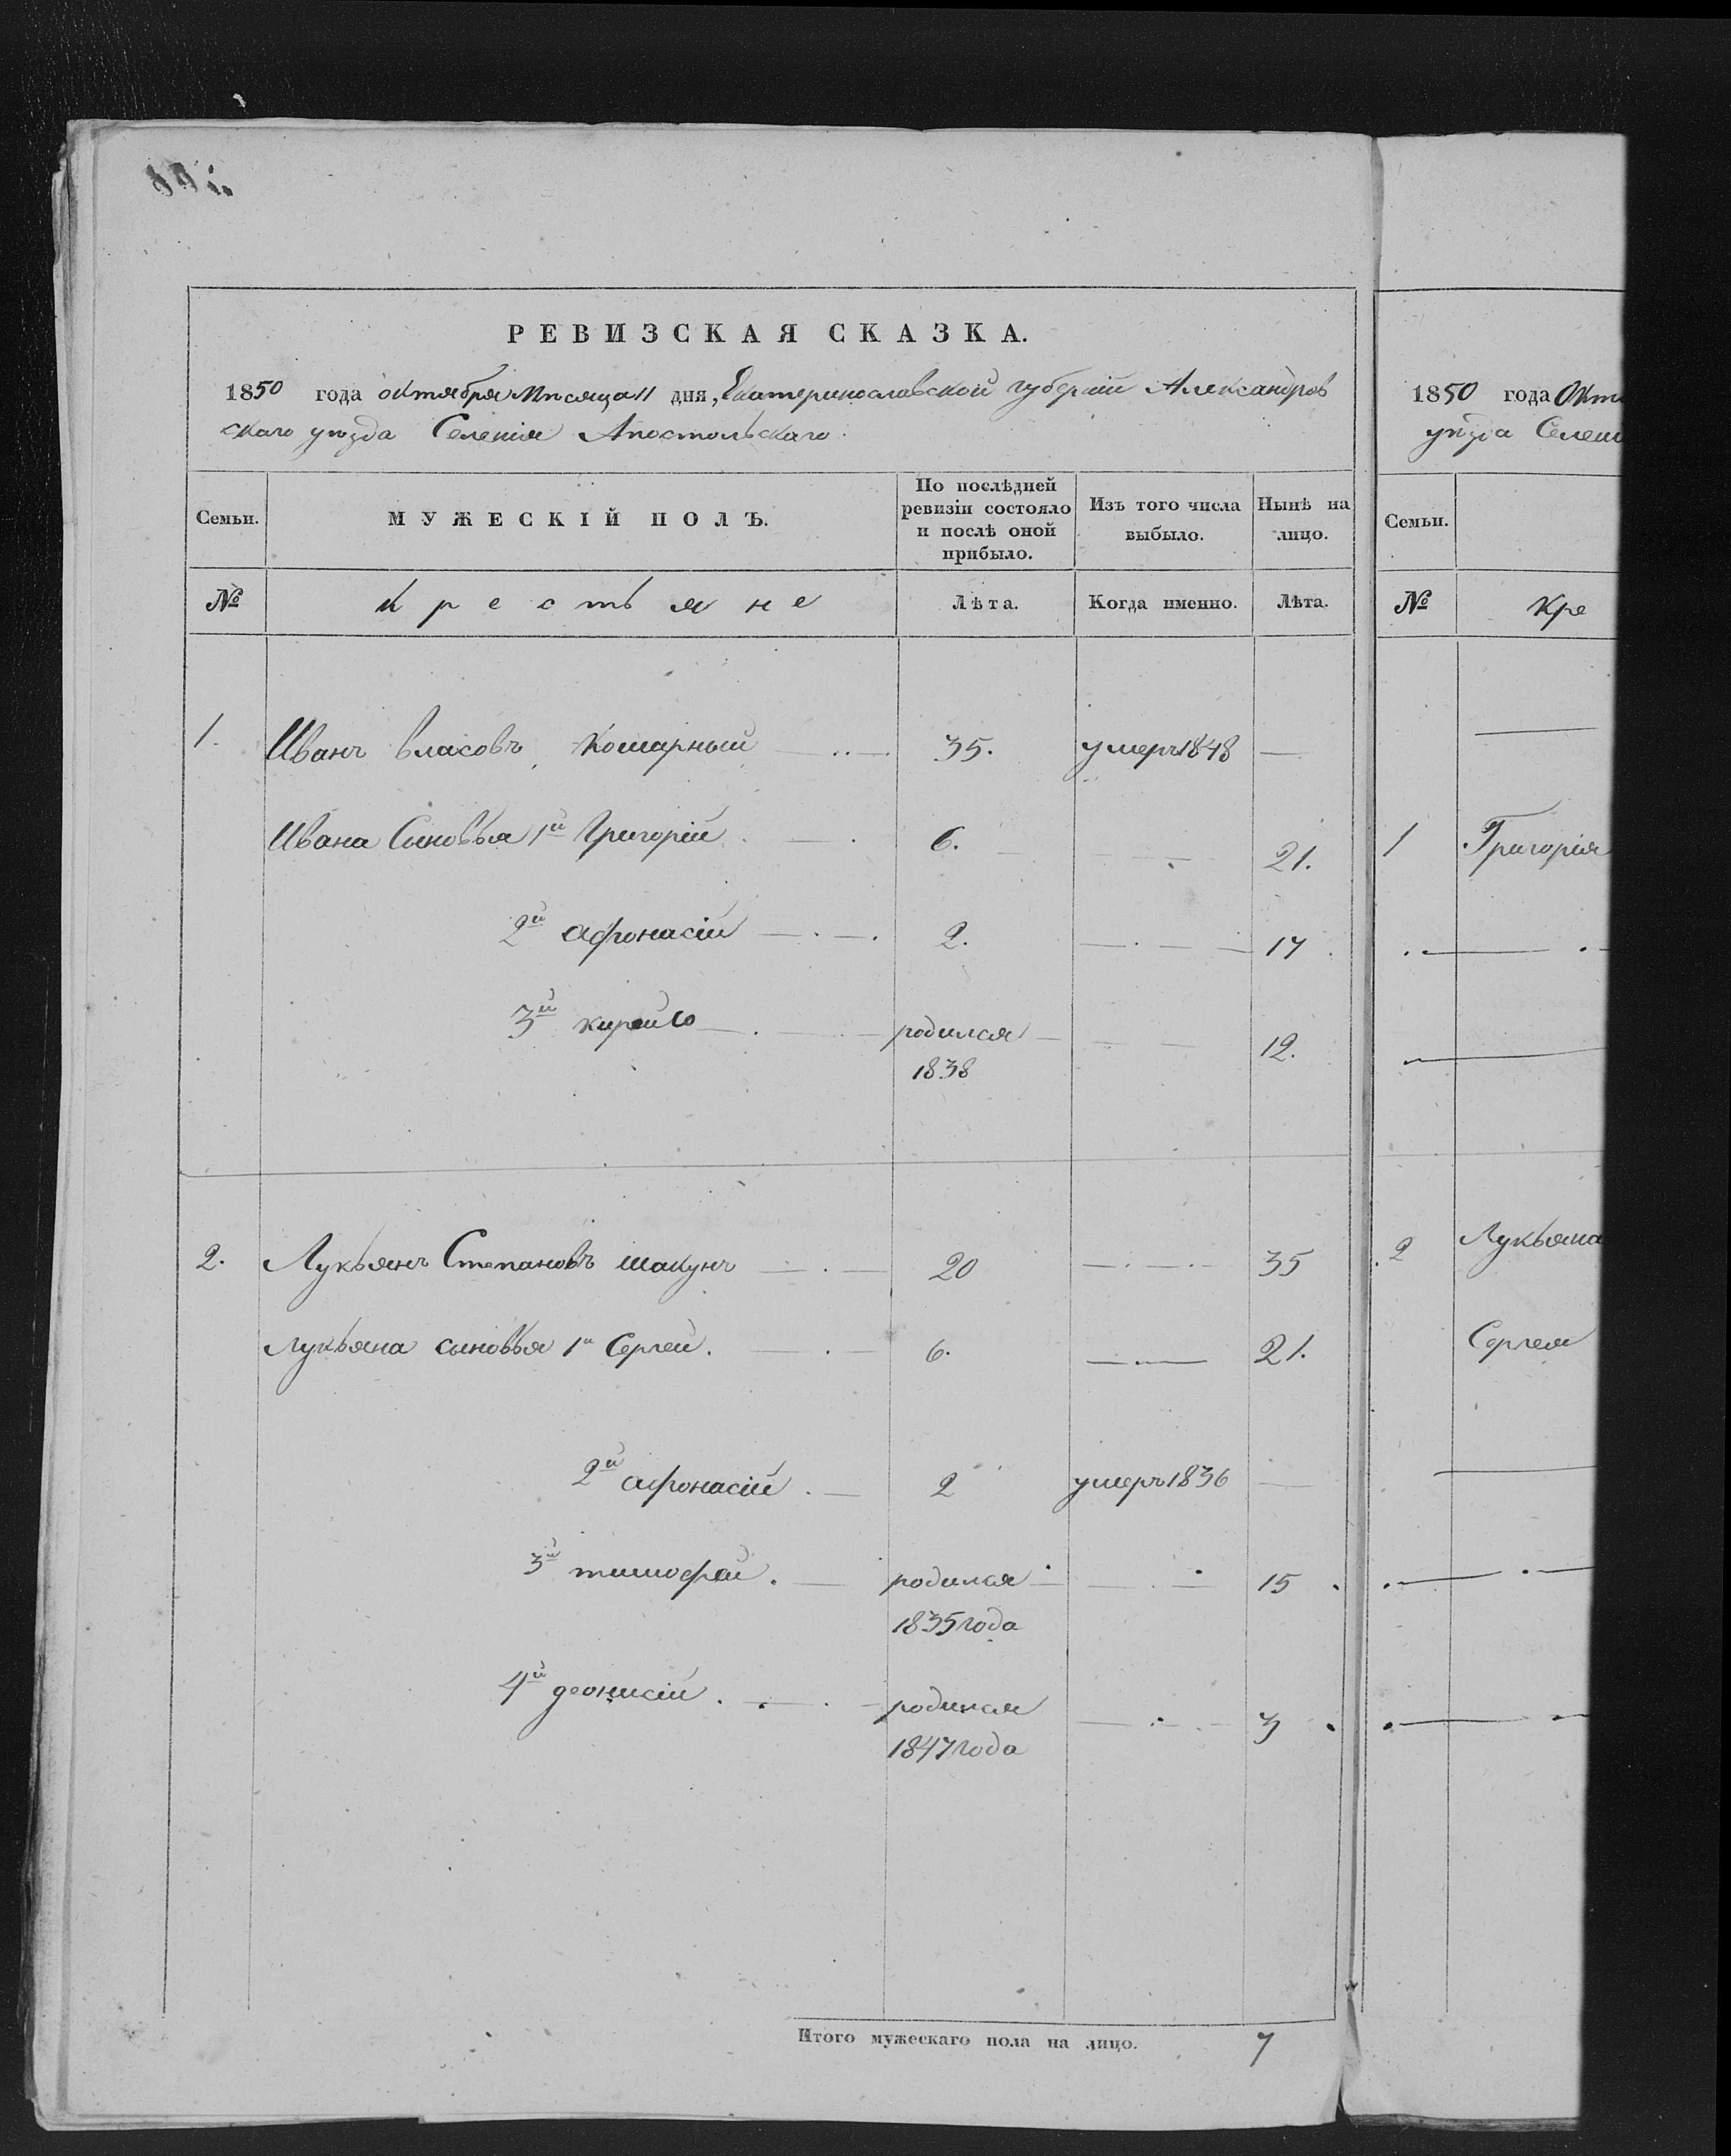 РЕВИЗСКАЯ СКАЗКА.
1850 года октября мѣсяца 11 дня, Екатеринославской губерніи Александров
скаго уѣзда Селенія Апостольскаго.
Семьи. МУЖЕСКІЙ ПОЛЪ. По послѣдней ревизіи состояло и послѣ оной прибыло. Изъ того числа выбыло. Нынѣ на лицо.
№ крестьяне Лѣта. Когда именно. Лѣта.
1. Иванъ власовъ Кошарный 35. умеръ 1848 —
Ивана Сыновья 1й Григорій 6. 21.
2й афонасій 2. 17.
3й кирило родился 12.
1838
2. Лукьянъ Степановъ шакунъ 20 35
Лукьяна сыновья 1й Сергей. 6. 21.
2й афонасій. 2 умеръ 1836 —
3й тимофей. родился 15.
1835 года
4й деонисій. родился 3.
1847 года
Итого мужескаго пола на лицо. 7
1850 года Окт
уѣзда Селен
Семьи.
№ Кре
1 Григорія
2 Лукьяна
Сергея